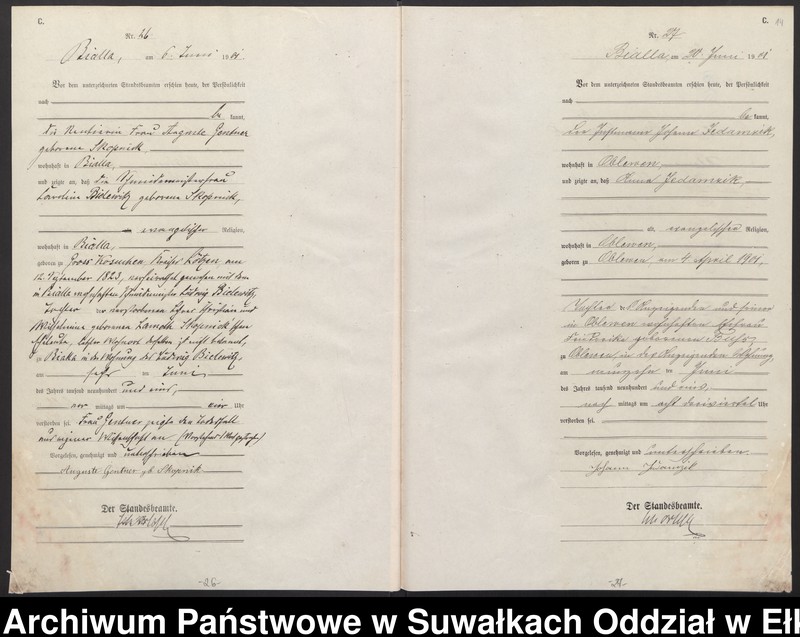 C.
Nr. 26
Bialla, am 6. Juni 1901
Vor dem unterzeichneten Standesbeamten erschien heute, der Persönlichkeit
nach
be kannt,
die Rentierin Frau Auguste Gentner
geborene Skopnick
wohnhaft in Bialla,
und zeigte an, daß die Schneidermeisterfrau
Karoline Bielewitz geborene Skopnick,
evangelischer Religion,
wohnhaft in Bialla,
geboren zu Gross Kosuchen Kreises Lötzen am
12. September 1823, verheirathet gewesen mit dem
in Bialla wohnhaften Schneidermeister Ludwig Bielewitz,
Tochter der verstorbenen Christian und
Wilhelmine geborenen Skopnickschen
Eheleute, letzter Wohnort derselben ist nicht bekannt,
zu Bialla in der Wohnung des Ludwig Bielewitz,
am Juni
des Jahres tausend neunhundert und eins,
vor mittags um vier Uhr
verstorben sei. Frau Gentner zeigte den Todesfall
aus eigener Wissenschaft an
Vorgelesen, genehmigt und unterschrieben
Auguste Gentner gb. Skopnick
Der Standesbeamte.
-26-
C. 14
Nr. 27
Bialla am 20. Juni 1901
Vor dem unterzeichneten Standesbeamten erschien heute, der Persönlichkeit
nach
be kannt,
der Instmann Johann Jedamzik,
wohnhaft in Oblewen,
und zeigte an, daß Anna Jedamzik,
evangelischer Religion,
wohnhaft in Oblewen,
geboren zu Oblewen am 4. April 1901,
Tochter des Anzeigenden und seiner
in Oblewen wohnhaften Ehefrau
Friederike geborenen
zu Oblewen, in des Anzeigenden Wohnung
am Juni
des Jahres tausend neunhundert und eins
nach mittags um acht dreiviertel Uhr
verstorben sei.
Vorgelesen, genehmigt und unterschrieben
Johann
Der Standesbeamte.
Archiwum Państwowe w Suwałkach Oddział w Ełk